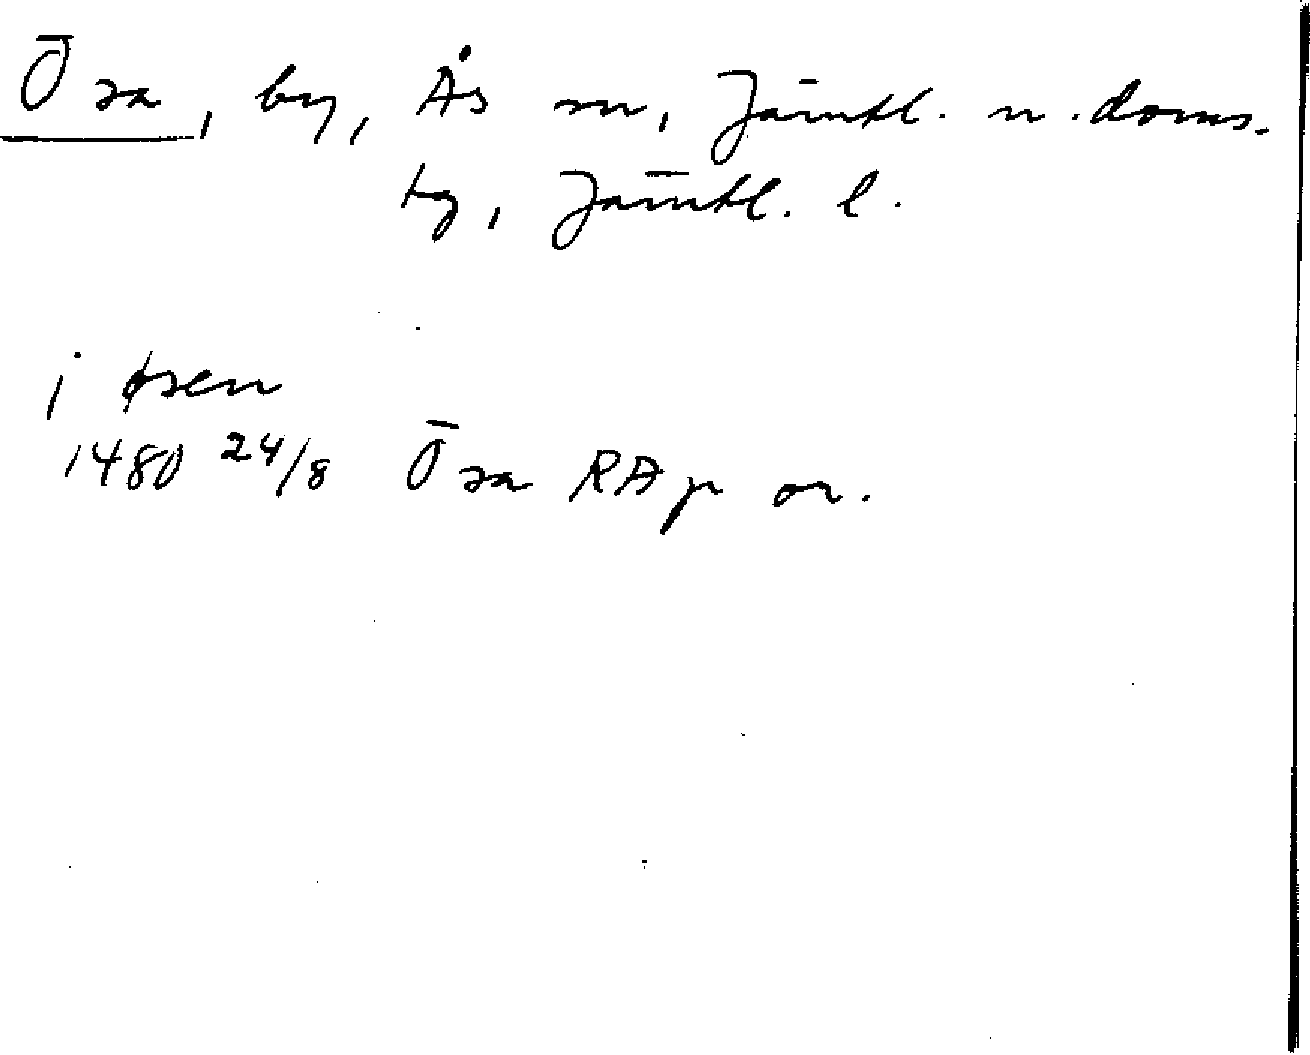 Ösa, by, Ås sn, Jämtl. n. doms-
tg, Jämtl. l.
i øsen
1480 24/8 Ösa RAp or.